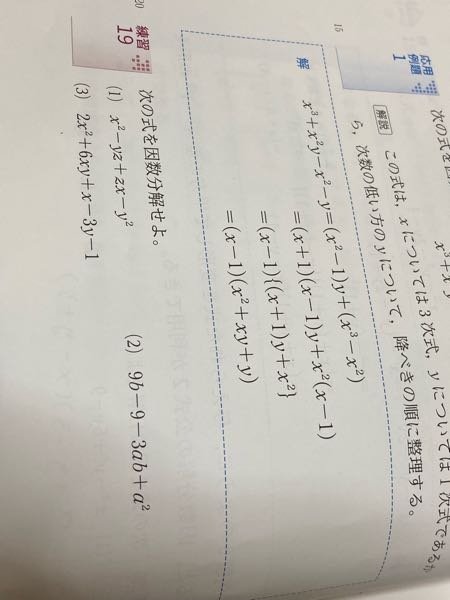 応用
例題
1
次の式を因
x³+x²y
解説 この式は，xについては3次式，yについては1次式であるか
ら，次数の低い方のyについて，降べきの順に整理する。
15
解 x³+x²y−x²−y=(x²−1)y+(x³−x²)
=(x+1)(x−1)y+x²(x−1)
=(x−1){(x+1)y+x²}
=(x−1)(x²+xy+y)
練習
19
次の式を因数分解せよ。
20
(1) x²−yz+zx−y² (2) 9b−9−3ab+a²
(3) 2x²+6xy+x−3y−1